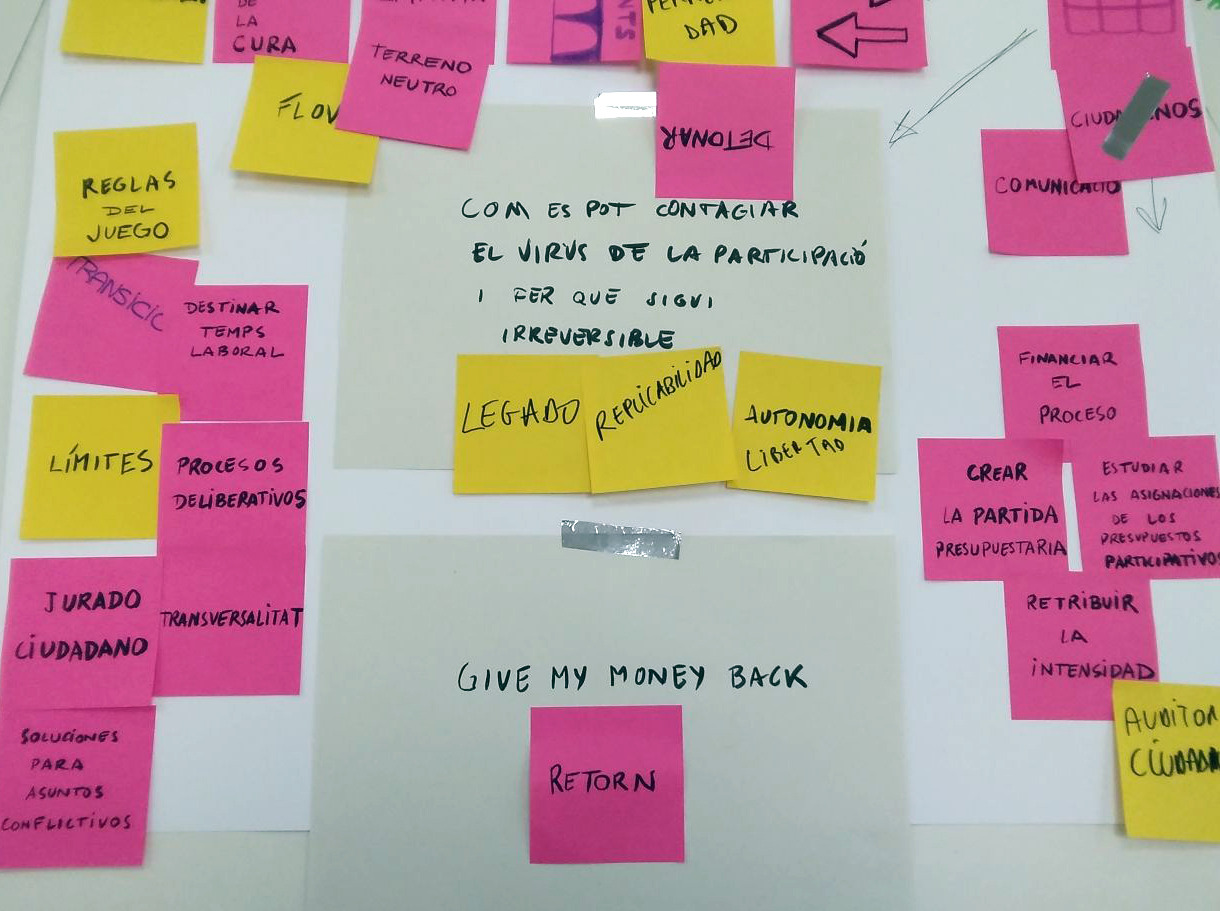 DE
LA
CURA
TERRENO
NEUTRO
DAD
FLOW
DETONAR
CIUDADANOS
COMUNICACIÓ
REGLAS
DEL
JUEGO
COM ES POT CONTAGIAR
EL VIRUS DE LA PARTICIPACIÓ
I FER QUE SIGUI
IRREVERSIBLE
DESTINAR
TEMPS
LABORAL
LEGADO
REPLICABILIDAD
AUTONOMIA
LIBERTAD
FINANCIAR
EL
PROCESO
LÍMITES
PROCESOS
DELIBERATIVOS
TRANSVERSALITAT
CREAR
LA PARTIDA
PRESUPUESTARIA
ESTUDIAR
LAS ASIGNACIONES
DE LOS
PRESUPUESTOS
PARTICIPATIVOS
JURADO
CIUDADANO
RETRIBUIR
LA
INTENSIDAD
GIVE MY MONEY BACK
RETORN
SOLUCIONES
PARA
ASUNTOS
CONFLICTIVOS